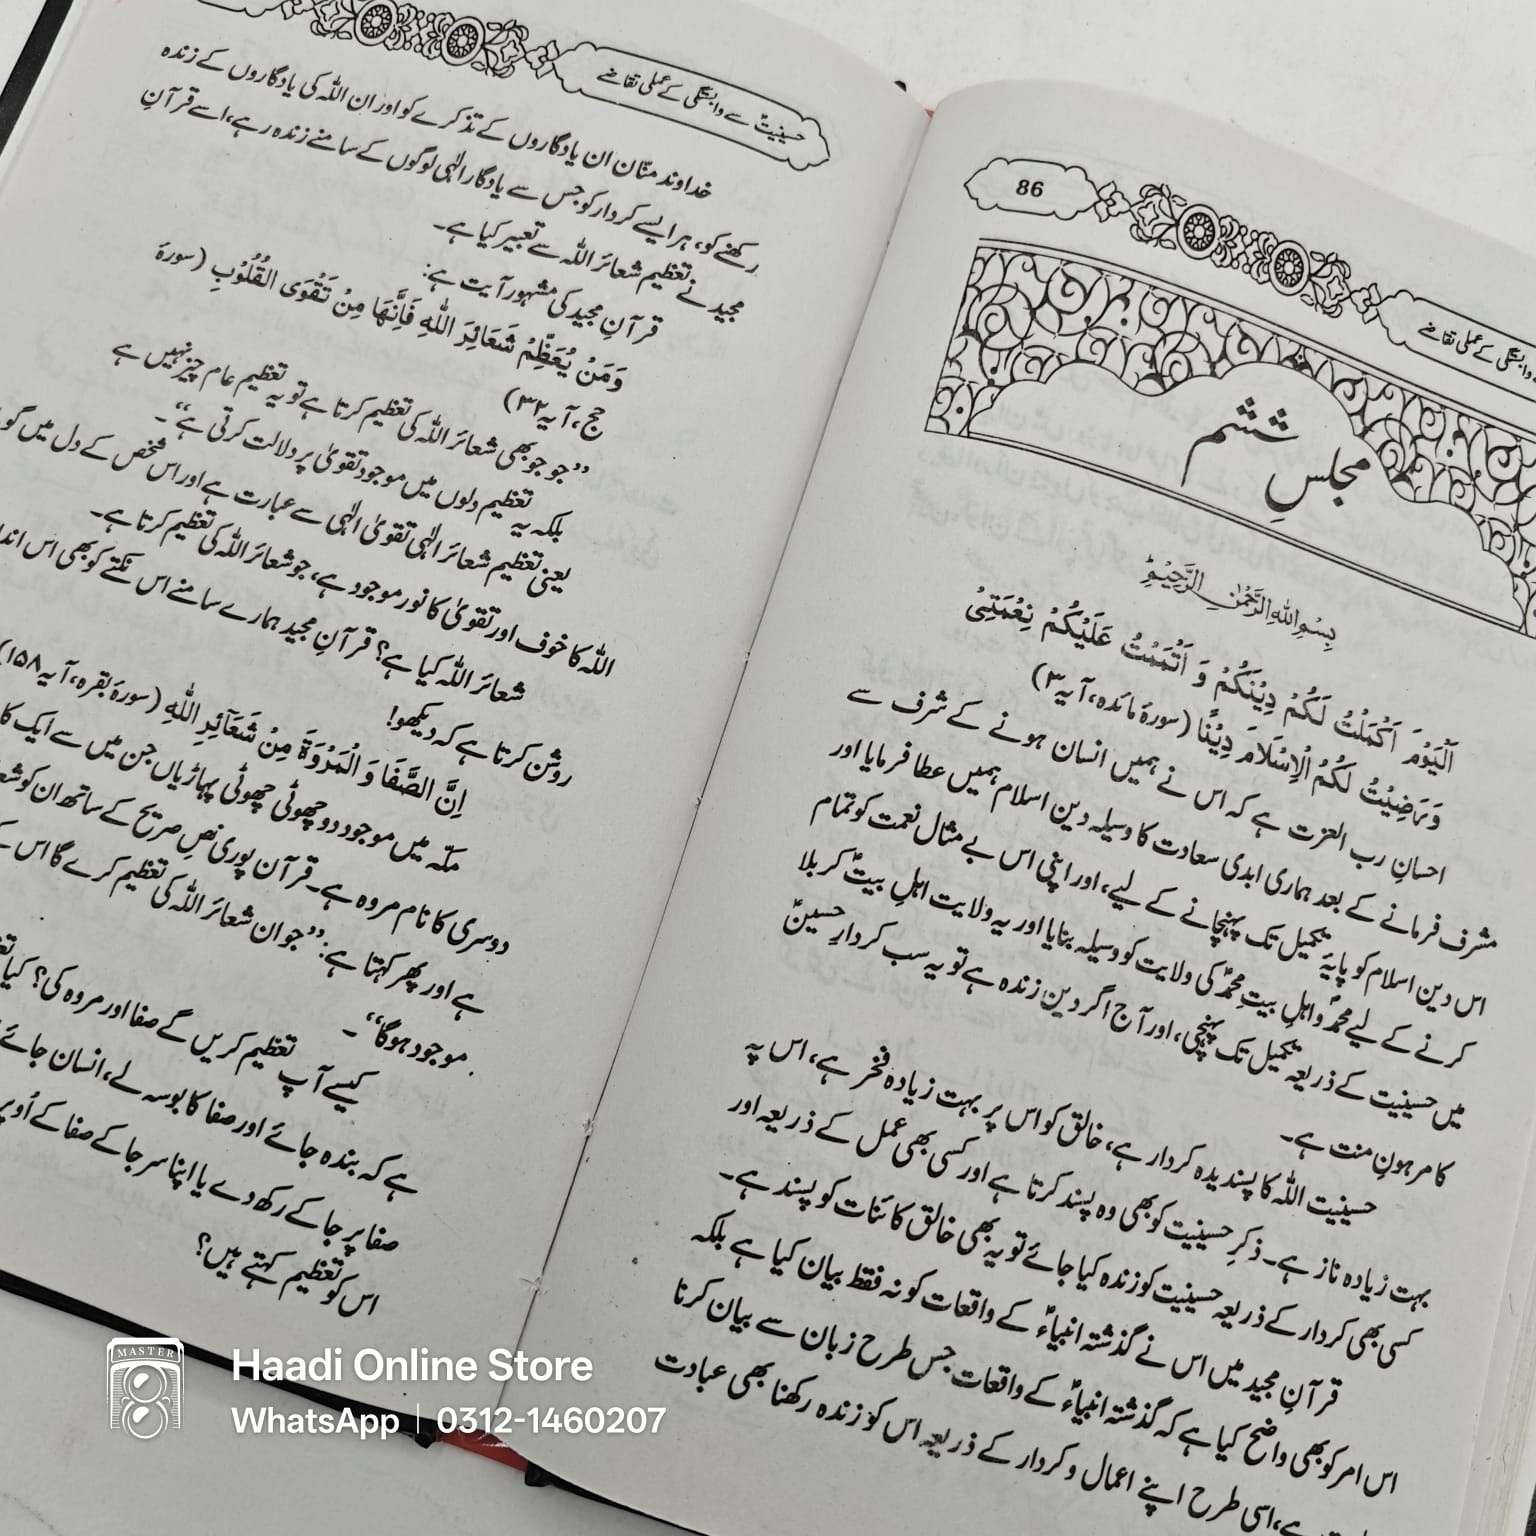 86
وابستگی کے عملی تقاضے
مجلسِ ششم
بِسْمِ اللہِ الرَّحْمٰنِ الرَّحِیْمِ
اَلْیَوْمَ اَکْمَلْتُ لَکُمْ دِیْنَکُمْ وَ اَتْمَمْتُ عَلَیْکُمْ نِعْمَتِیْ
وَرَضِیْتُ لَکُمُ الْاِسْلَامَ دِیْنًا (سورۂ مائدہ، آیہ۳)
احسانِ رب العزت ہے کہ اس نے ہمیں انسان ہونے کے شرف سے
مشرف فرمانے کے بعد ہماری ابدی سعادت کا وسیلہ دین اسلام ہمیں عطا فرمایا اور
اس دین اسلام کو پایۂ تکمیل تک پہنچانے کے لیے، اور اپنی اس بے مثال نعمت کو تمام
کرنے کے لیے محمدؐ واہلِ بیتِ محمدؐ کی ولایت کو وسیلہ بنایا اور یہ ولایت اہلِ بیتؑ کربلا
میں حسینیت کے ذریعہ تکمیل تک پہنچی، اور آج اگر دین زندہ ہے تو یہ سب کردارِ حسینؑ
کا مرہونِ منت ہے۔
حسینیت اللہ کا پسندیدہ کردار ہے، خالق کو اس پر بہت زیادہ فخر ہے، اس پہ
بہت زیادہ ناز ہے۔ ذکرِ حسینیت کو بھی وہ پسند کرتا ہے اور کسی بھی عمل کے ذریعہ اور
کسی بھی کردار کے ذریعہ حسینیت کو زندہ کیا جائے تو یہ بھی خالق کائنات کو پسند ہے۔
قرآنِ مجید میں اس نے گذشتہ انبیاءؑ کے واقعات کو نہ فقط بیان کیا ہے بلکہ
اس امر کو بھی واضح کیا ہے کہ گذشتہ انبیاءؑ کے واقعات جس طرح زبان سے بیان کرنا
ہے، اسی طرح اپنے اعمال و کردار کے ذریعہ اس کو زندہ رکھنا بھی عبادت
حسینیتؑ سے وابستگی کے عملی تقاضے
خداوند منّان ان یادگاروں کے تذکرے کو اور ان اللہ کی یادگاروں کے زندہ
رکھنے کو، ہر ایسے کردار کو جس سے یادگار الٰہی لوگوں کے سامنے زندہ رہے، اسے قرآنِ
مجید نے تعظیم شعائر اللہ سے تعبیر کیا ہے۔
قرآنِ مجید کی مشہور آیت ہے:
وَمَنْ یُعَظِّمْ شَعَائِرَ اللہِ فَاِنَّھَا مِنْ تَقْوَی الْقُلُوْبِ (سورۂ
حج، آیہ۳۲)
’’جو جو بھی شعائر اللہ کی تعظیم کرتا ہے تو یہ تعظیم عام چیز نہیں ہے
بلکہ یہ تعظیم دلوں میں موجود تقویٰ پر دلالت کرتی ہے‘‘۔
یعنی تعظیم شعائر الٰہی تقویٰ الٰہی سے عبارت ہے اور اس شخص کے دل میں گو
اللہ کا خوف اور تقویٰ کا نور موجود ہے، جو شعائر اللہ کی تعظیم کرتا ہے۔
شعائر اللہ کیا ہے؟ قرآنِ مجید ہمارے سامنے اس نکتے کو بھی اس
روشن کرتا ہے کہ دیکھو!
اِنَّ الصَّفَا وَ الْمَرْوَۃَ مِنْ شَعَآئِرِ اللہِ (سورۂ بقرہ، آیہ۱۵۸)
مکّہ میں موجود دو چھوٹی چھوٹی پہاڑیاں جن میں سے ایک کا
دوسری کا نام مروہ ہے۔ قرآن پوری نصِ صریح کے ساتھ ان کو
ہے اور پھر کہتا ہے: ’’جو ان شعائر اللہ کی تعظیم کرے گا اس کے
موجود ہوگا‘‘۔
کیسے آپ تعظیم کریں گے صفا اور مروہ کی؟ کیا
ہے کہ بندہ جائے اور صفا کا بوسہ لے، انسان جائے
صفا پر جا کے رکھ دے یا اپنا سر جا کے صفا کے اُوپر
اس کو تعظیم کہتے ہیں؟
MASTER
Haadi Online Store
WhatsApp | 0312-1460207